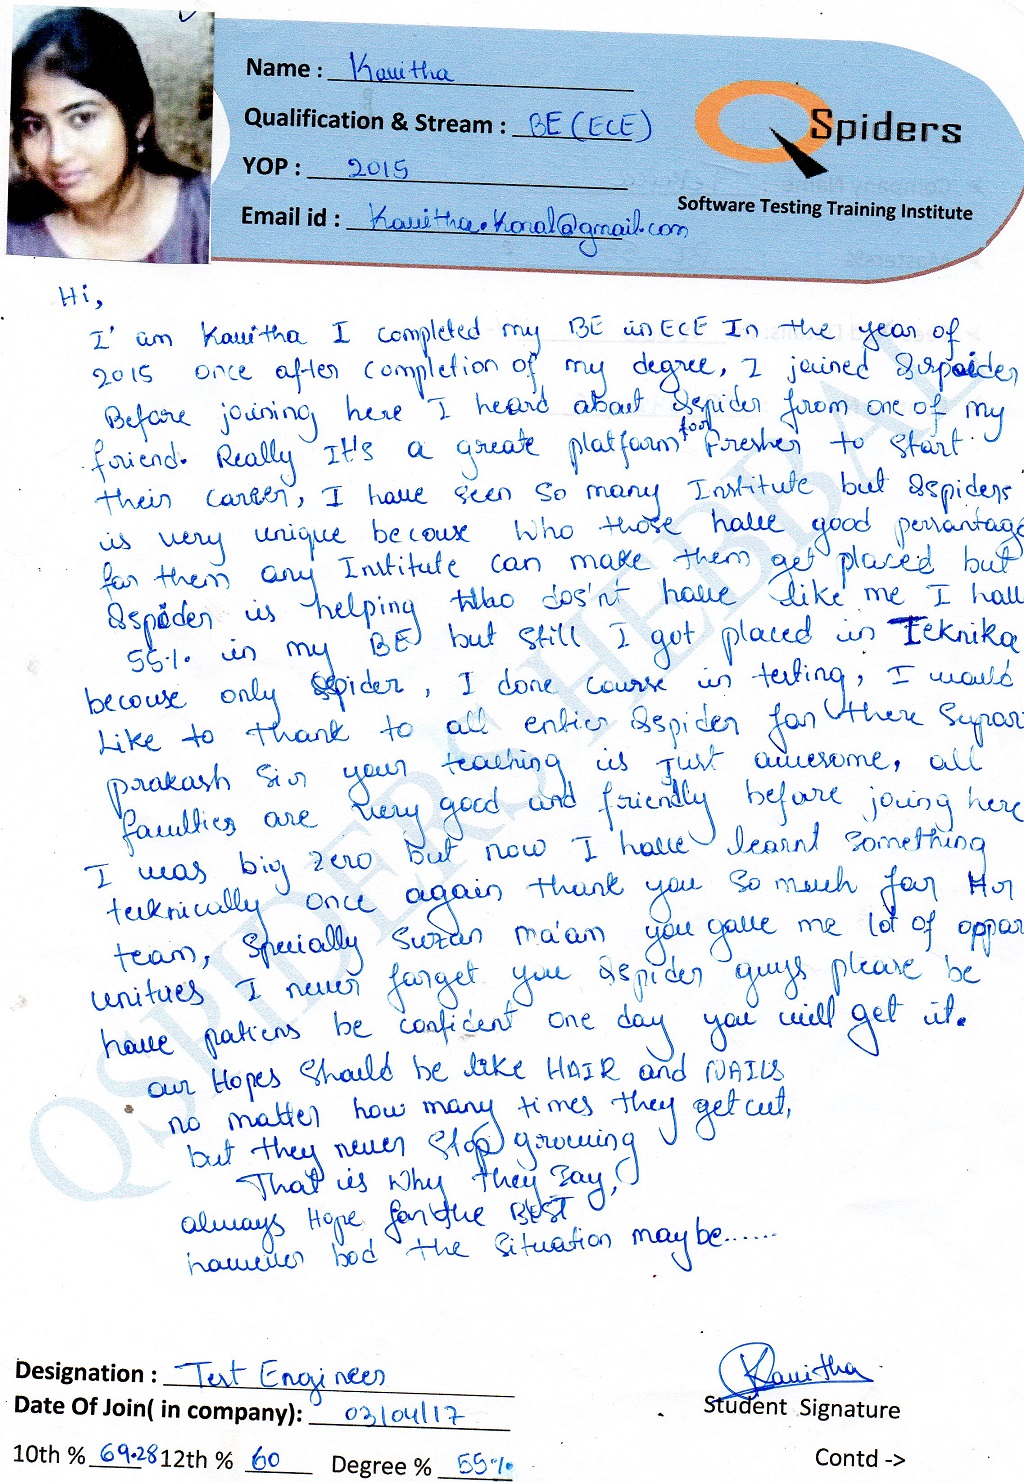 Name : Kavitha
Qualification & Stream : BE (ECE)
YOP : 2015
Email id : Kavitha.Koral@gmail.com
QSpiders
Software Testing Training Institute
Hi,
I' am Kavitha I completed my BE in ECE In the year of
2015 once after completion of my degree, I joined Qspider
Before joining here I heard about Qspider from one of my
friend. Really It's a greate platform for Fresher to start
their career, I have seen so many Institute but Qspiders
is very unique becouse who those have good persantage
for them any Institute can make them get placed but
Qspider is helping who dos'nt have like me I have
55% in my BE but still I got placed in Teknika
becouse only Qspider, I done course in testing, I would
Like to thank to all entier Qspider for there Suppor
prakash Sir your teaching is Just awesome, all
faculties are very good and friendly before joing here
I was big zero but now I have learnt something
teknically once again thank you so much for Hr
team, specially Suzan ma'am you gave me lot of oppor
unities I never forget you Qspider guys please be
have patiens be confident one day you will get it.
our Hopes should be like HAIR and NAILS
no matter how many times they get cut,
but they never stop growing
That is why they say,
always Hope for the BEST
however bad the situation may be......
QSPIDERS HEBBAL
Designation : Test Engineer
Date Of Join( in company): 03/04/17
10th % 69.28 12th % 60 Degree % 55%
Kavitha
Student Signature
Contd ->